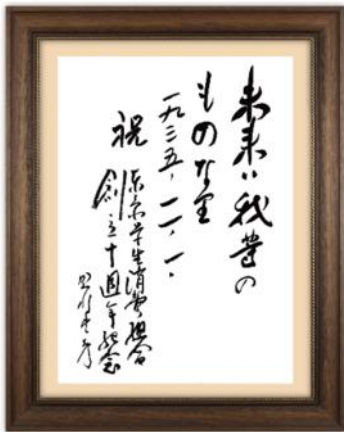 未来ハ我等の
ものなり
一九三五、一一、一、
祝
東京学生消費組合
創立十週年記念
賀川豊彦